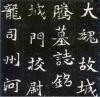 大魏故城
騰墓誌銘
城門校尉
龍司州河